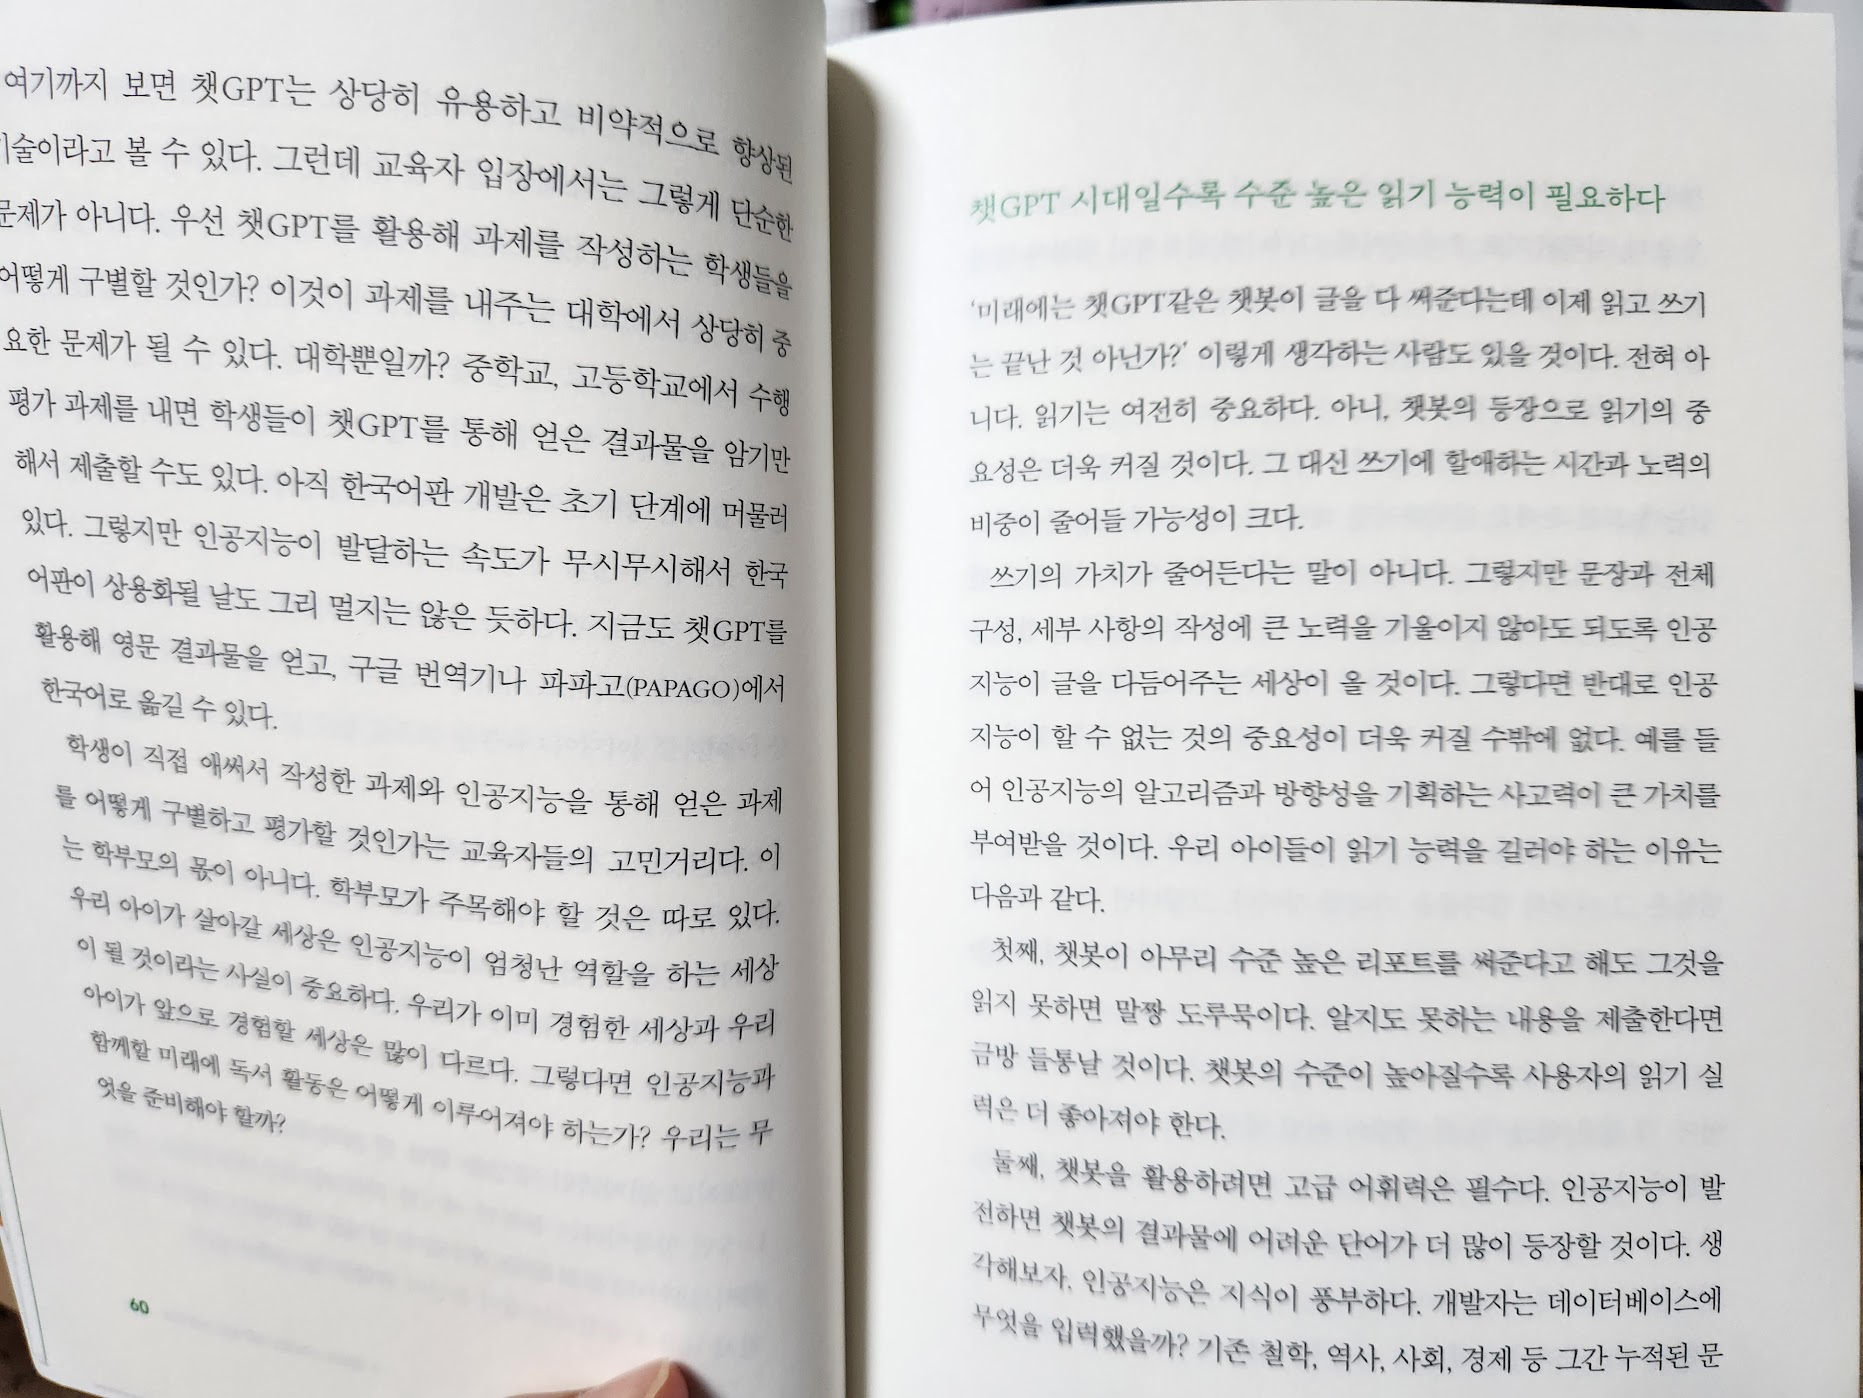 여기까지 보면 챗GPT는 상당히 유용하고 비약적으로 향상된
기술이라고 볼 수 있다. 그런데 교육자 입장에서는 그렇게 단순한
문제가 아니다. 우선 챗GPT를 활용해 과제를 작성하는 학생들을
어떻게 구별할 것인가? 이것이 과제를 내주는 대학에서 상당히 중
요한 문제가 될 수 있다. 대학뿐일까? 중학교, 고등학교에서 수행
평가 과제를 내면 학생들이 챗GPT를 통해 얻은 결과물을 암기만
해서 제출할 수도 있다. 아직 한국어판 개발은 초기 단계에 머물러
있다. 그렇지만 인공지능이 발달하는 속도가 무시무시해서 한국
어판이 상용화될 날도 그리 멀지는 않은 듯하다. 지금도 챗GPT를
활용해 영문 결과물을 얻고, 구글 번역기나 파파고(PAPAGO)에서
한국어로 옮길 수 있다.
학생이 직접 애써서 작성한 과제와 인공지능을 통해 얻은 과제
를 어떻게 구별하고 평가할 것인가는 교육자들의 고민거리다. 이
는 학부모의 몫이 아니다. 학부모가 주목해야 할 것은 따로 있다.
우리 아이가 살아갈 세상은 인공지능이 엄청난 역할을 하는 세상
이 될 것이라는 사실이 중요하다. 우리가 이미 경험한 세상과 우리
아이가 앞으로 경험할 세상은 많이 다르다. 그렇다면 인공지능과
함께할 미래에 독서 활동은 어떻게 이루어져야 하는가? 우리는 무
엇을 준비해야 할까?
60
챗GPT 시대일수록 수준 높은 읽기 능력이 필요하다
'미래에는 챗GPT같은 챗봇이 글을 다 써준다는데 이제 읽고 쓰기
는 끝난 것 아닌가?' 이렇게 생각하는 사람도 있을 것이다. 전혀 아
니다. 읽기는 여전히 중요하다. 아니, 챗봇의 등장으로 읽기의 중
요성은 더욱 커질 것이다. 그 대신 쓰기에 할애하는 시간과 노력의
비중이 줄어들 가능성이 크다.
쓰기의 가치가 줄어든다는 말이 아니다. 그렇지만 문장과 전체
구성, 세부 사항의 작성에 큰 노력을 기울이지 않아도 되도록 인공
지능이 글을 다듬어주는 세상이 올 것이다. 그렇다면 반대로 인공
지능이 할 수 없는 것의 중요성이 더욱 커질 수밖에 없다. 예를 들
어 인공지능의 알고리즘과 방향성을 기획하는 사고력이 큰 가치를
부여받을 것이다. 우리 아이들이 읽기 능력을 길러야 하는 이유는
다음과 같다.
첫째, 챗봇이 아무리 수준 높은 리포트를 써준다고 해도 그것을
읽지 못하면 말짱 도루묵이다. 알지도 못하는 내용을 제출한다면
금방 들통날 것이다. 챗봇의 수준이 높아질수록 사용자의 읽기 실
력은 더 좋아져야 한다.
둘째, 챗봇을 활용하려면 고급 어휘력은 필수다. 인공지능이 발
전하면 챗봇의 결과물에 어려운 단어가 더 많이 등장할 것이다. 생
각해보자. 인공지능은 지식이 풍부하다. 개발자는 데이터베이스에
무엇을 입력했을까? 기존 철학, 역사, 사회, 경제 등 그간 누적된 문